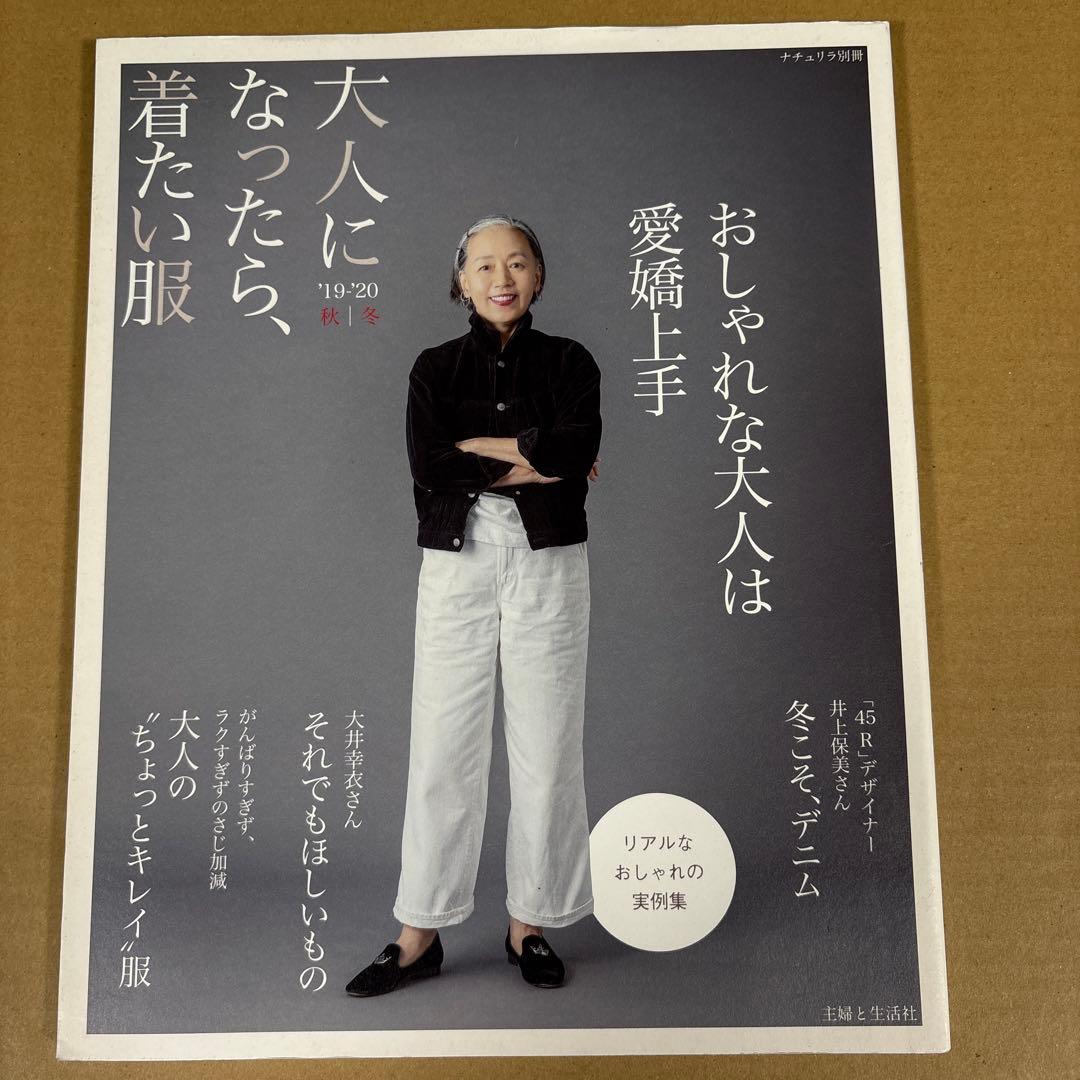 ナチュリラ別冊
大人に
なったら、
着たい服
’19-’20
秋|冬
おしゃれな大人は
愛嬌上手
「45R」デザイナー
井上保美さん
冬こそ、デニム
リアルな
おしゃれの
実例集
大井幸衣さん
それでもほしいもの
がんばりすぎず、
ラクすぎずのさじ加減
大人の
〝ちょっとキレイ〟服
主婦と生活社